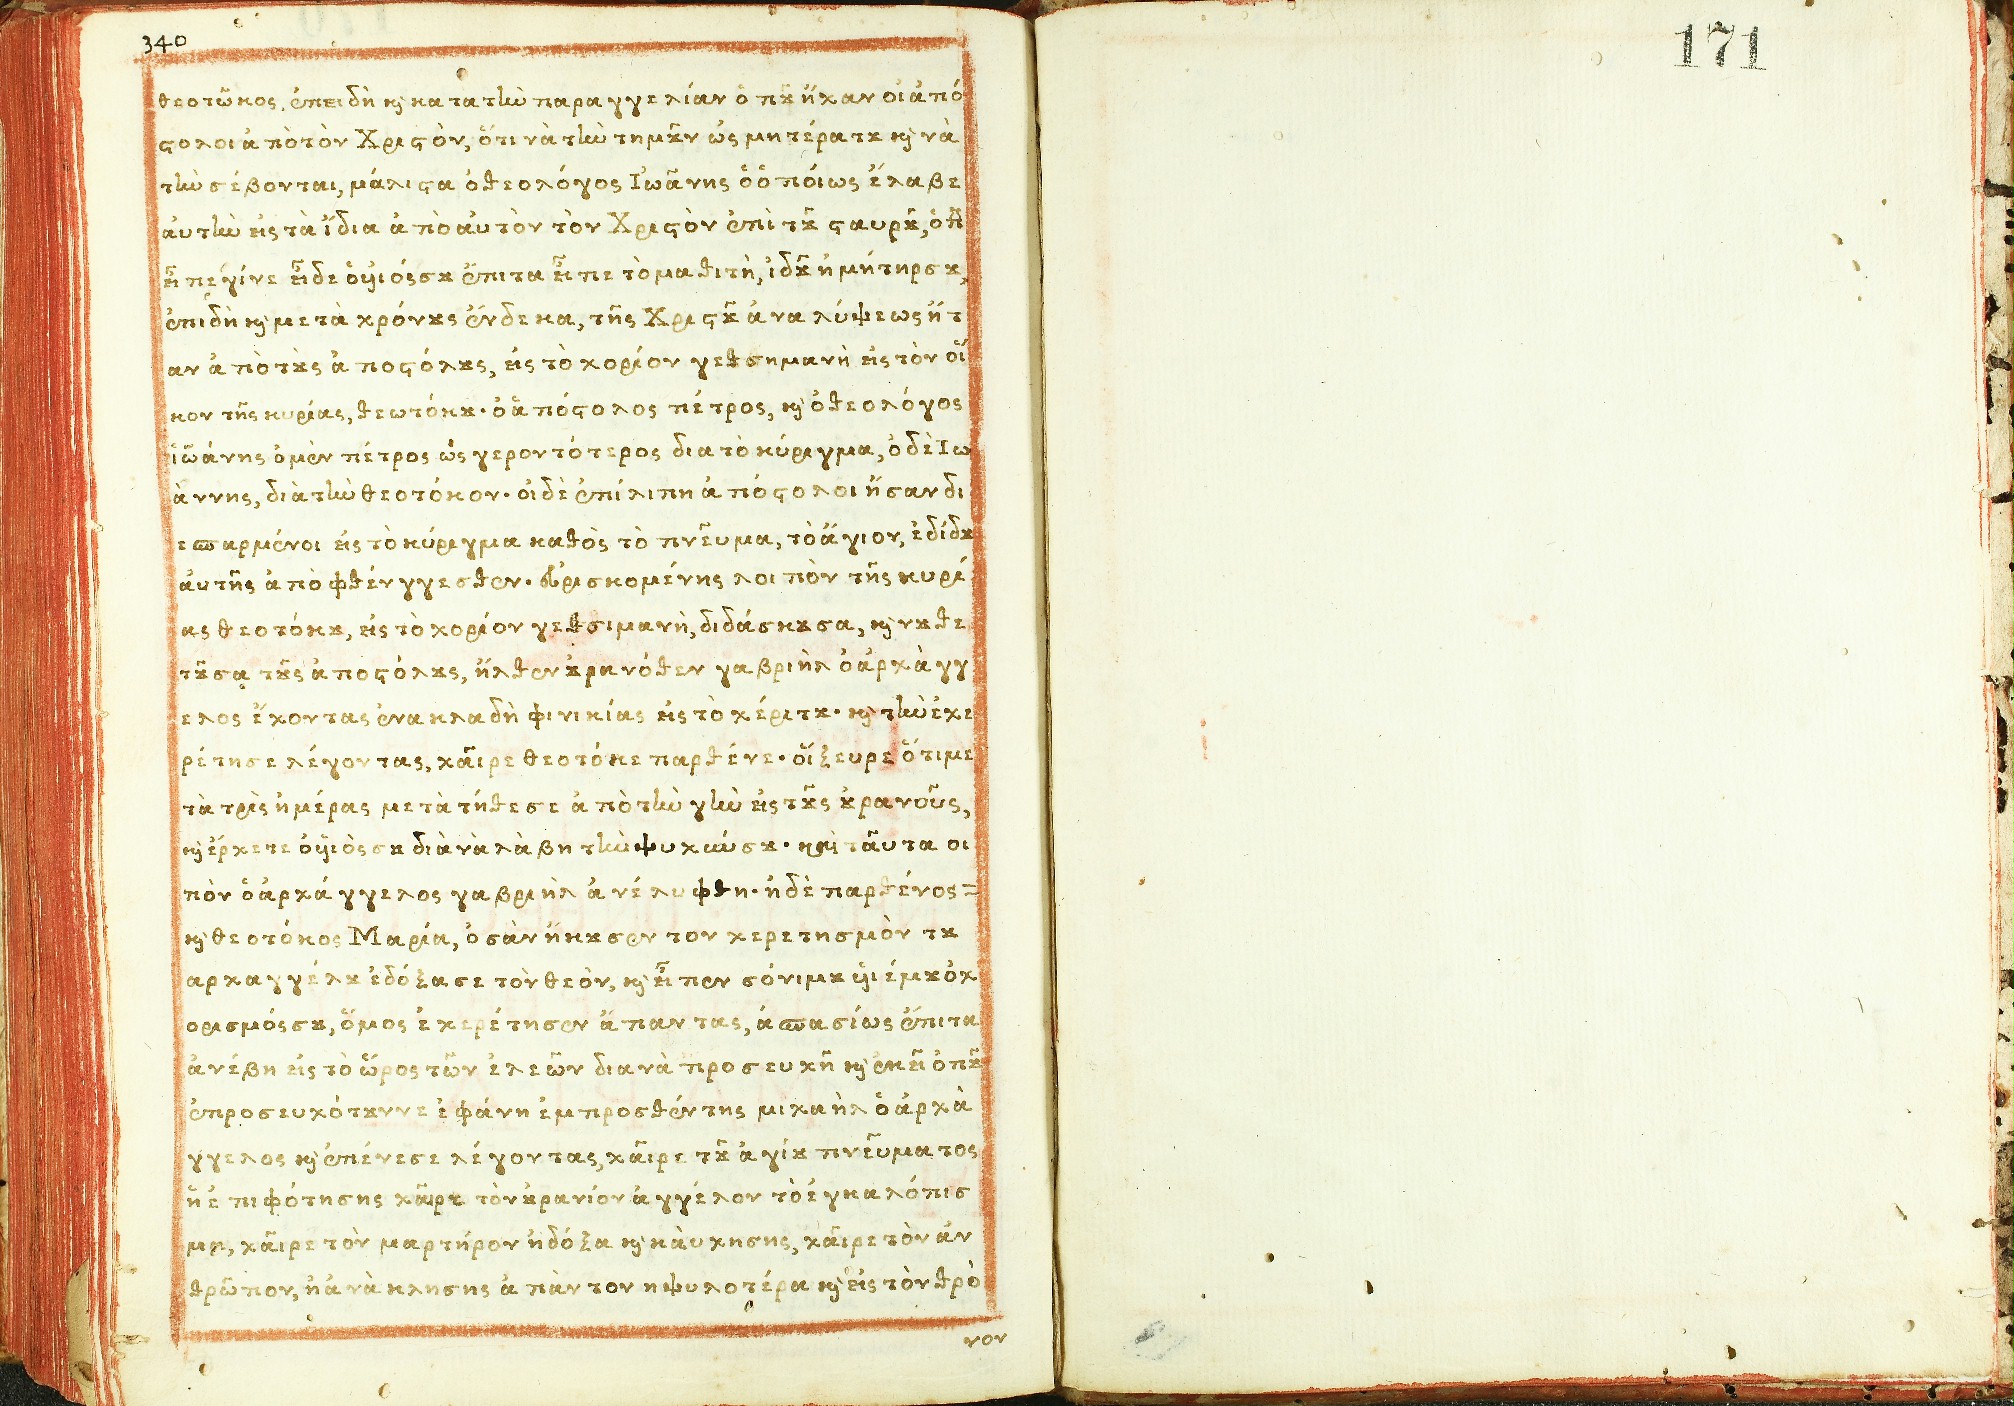 340
171
θεοτῶκος, ἐπειδὴ κ̀ κατατὴν παραγγελίαν ὁπȣ̃ ἤχαν οἱ ἀπό
ϛολοι ἀπὸ τὸν Χριϛὸν, ὅτι νὰ τὴν τημȣ̃ν ὡς μητέρα τȣ κ̀ νὰ
τὴν σέβονται, μάλιϛα ὁ θεολόγος Ἰωᾶνης ὁ ὁπόιως ἔλαβε
ἀυτὴν εἰς τὰ ἴδια ἀπὸ ἀυτὸν τὸν Χριϛὸν ἐπὶ τȣ̃ ϛαυρȣ̃, ὁπȣ̃
εἶπε γίνε εἶδε ὁ ὑιός σȣ ἔπιτα εἶπε τὸ μαθιτὴ, ἰδȣ̃ ἡ μήτηρ σȣ,
ἐπιδὴ κ̀ μετὰ χρόνȣς ἕνδεκα, τῆς Χριϛȣ̃ ἀναλύψεως ἤτ
αν ἀπὸ τȣ̀ς ἀποϛόλȣς, εἰς τὸ χορίον γεθσημανὴ εἰς τὸν οἴ
κον τῆς κυρίας, θεωτόκȣ· ὁ ἀπόϛολος πέτρος, κ̀ ὁ θεολόγος
ἰῶάνης ὁ μὲν πέτρος ὡς γεροντότερος δια τὸ κύριγμα, ὁ δὲ Ιω
ὰννης, διὰ τὴν θεοτόκον· οἱ δὲ ἐπίλιπη ἀπόϛολοι ἤσαν δι
εσπαρμένοι εἰς τὸ κύριγμα καθὸς τὸ πνεῦμα, τὸ ἅγιον, ἐδίδȣ
ἀυτῆς ἀπὸ φθένγγεσθεν· εὑρισκομένης λοιπὸν τῆς κυρί
ας θεοτόκȣ, εἰς τὸ χορίον γεθσιμανὴ, διδάσκȣσα, κ̀ νȣθε
τȣ̃σα τȣ̃ς ἀποϛόλȣς, ἦλθεν ȣ̓ρανόθεν γαβριὴλ ὁ ἀρχὰγγ
ελος ἔχοντας ἕνα κλαδὴ φινικίας εἰς τὸ χέρι τȣ· κ̀ τὴν ἐχε
ρέτησε λέγοντας, χαῖρε θεοτόκε παρθένε· οἴξευρε ὅτι με
τὰ τρὶς ἡμέρας μετὰ τήθεσε ἀπὸ τὴν γὴν εἰς τȣ̃ς ȣ̓ρανοῦς,
κ̀ ἔρχετε ὁ ὑιὸς σȣ διὰ νὰ λὰβη τὴν ψυχήν σȣ· καὶ ταῦτα οι
πὸν ὁ ἀρχάγγελος γαβριὴλ ἀνέλυφθη· ἡ δὲ παρθένος =
κ̀ θεοτόκος Μαρία, ὁσὰν ἤκȣσεν τον χερετησμὸν τȣ
αρχαγγέλȣ ἐδόξασε τὸν θεὸν, κ̀ εἶπεν σόνιμȣ ὑιέμȣ ὁ χ
ορισμός σȣ, ὅμος ἐχερέτησεν ἅπαντας, ἀσπασίως ἔπιτα
ἀνέβη εἰς τὸ ὅρος τῶν ἐλεῶν δια νὰ προσευχῆ κ̀ ἐκεῖ ὁπȣ̃
ἐπροσευχότȣννε ἐφάνη ἐμπροσθέν της μιχαὴλ ὁ ἀρχὰ
γγελος κ̀ ἐπένεσε λέγοντας, χαῖρε τȣ̃ ἁγίȣ πνεῦματος
ἡ ἐπιφότησης χαῖρε τὸν ȣ̓ρανίον ἀγγέλον τὸ ἐγκαλόπισ
μα, χαῖρε τὸν μαρτήρον ἡ δόξα κ̀ κὰυχησης, χαῖρε τὸν ἀν
θρῶπον, ἡ ἀνὰκλησης ἁπὰντον ηψυλοτέρα κ̀ εἰς τὸν θρὸ
νον